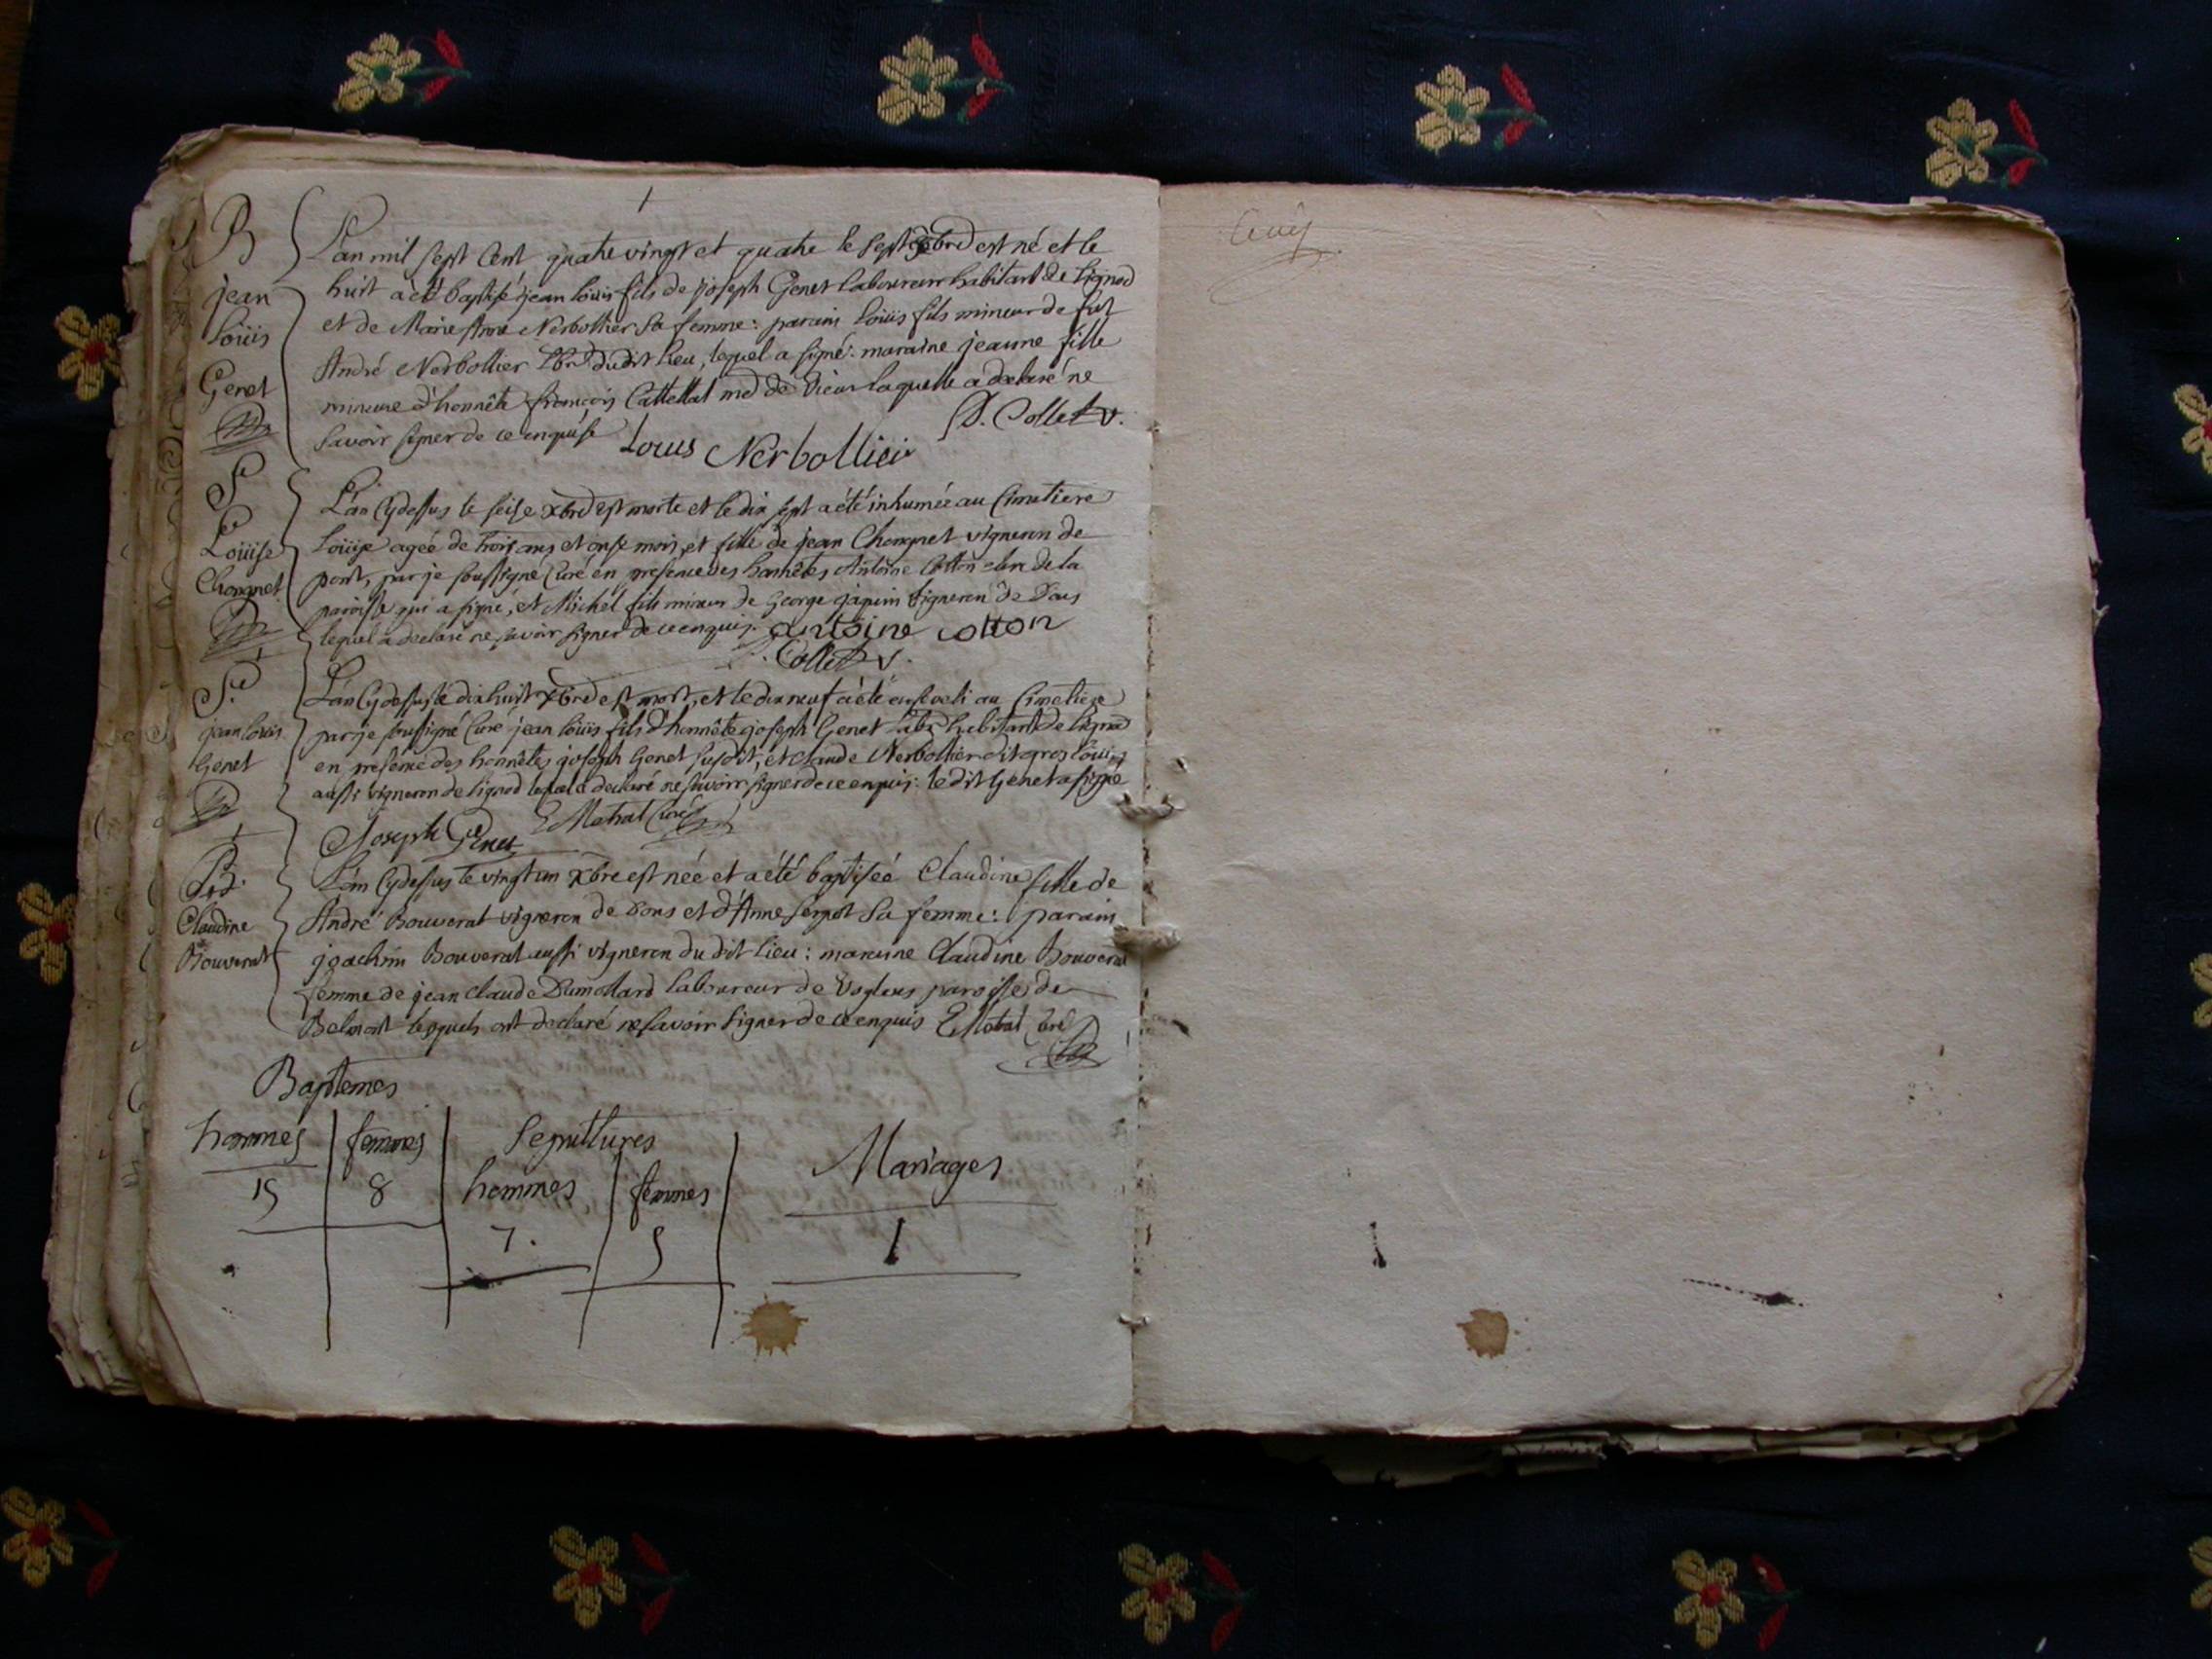 B
L'an mil sept cent quatre vingt et quatre le sept xbre est né et le
jean
huit a eté baptisé jean loüis fils de joseph Genet laboureur habitant de lignod
Loüis
et de Marie Anne Nerbollier sa femme: parain loüis fils mineur de fut
Genet
André Nerbollier du dit lieu, lequel a signé: maraine jeanne fille
mineure d'honnête françois md de Vieu laquelle a declaré ne
savoir signer de ce enquise
Louis Nerbollier
Collet v.
Sre
L'an Cy dessus le seise xbre est morte et le dix sept a été inhumée au Cimetiere
Loüise
Loüise agée de trois ans et onse mois, et fille de jean Chongnet vigneron de
Chongnet
pont, par je soussigné Curé en presence des honnêtes Antoine Cotton clerc de la
paroisse qui a signé, et Michel fils mineur de George japin vigneron de Dons
lequel a declaré ne savoir signer de ce enquis. antoine cotton
Collet v.
Sre
L'an Cy dessus le dix huit xbre est mort, et le dix neuf a été enseveli au Cimetiere
jean loüis
par je soussigné Curé jean loüis fils d'honnête joseph Genet labr habitant de lignod
Genet
en presence des honnêtes joseph Genet susdit, et claude Nerbollier dit gros loüis
aussi vigneron de lignod lequel a declaré ne savoir signer de ce enquis: le dit Genet a signé
Joseph Genet
Curé
B.
L'an Cy dessus le vingt un xbre est née et a été baptiseé Claudine fille de
Claudine
André Bouverat vigneron de Dons et d'Anne sa femme: parain
Bouverat
joachim Bouverat aussi vigneron du dit lieu: maraine Claudine Bouverat
femme de jean claude Dumollard laboureur de Vogleus paroisse de
Belmont lesquels ont declaré ne savoir signer de ce enquis
Baptemes
hommes femmes Sepultures Mariages
15 8 hommes femmes
7. 5 1